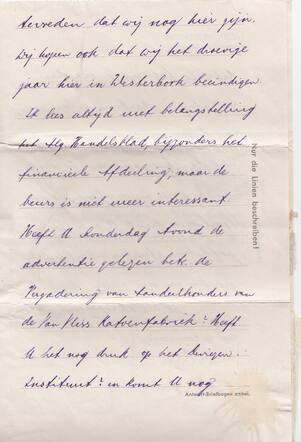 tevreden dat wij nog hier zijn.
Wij hopen ook dat wij het droevige
jaar hier in Westerbork beeindigen.
Ik lees altijd met belangstelling
het Alg. Handelsblad, bijzonders het
financieele Afdeeling, maar de
beurs is niet meer interessant.
Heeft U Donderdag Avond de
advertentie gelezen betr. de
Vergadering van Aandeelhouders van
de Van Vliss Katoenfabriek? Heeft
U het nog druk op het Deviezen-
Instituut? en komt U nog
Nur die Linien beschreiben!
Antwort-Briefbogen anbei.